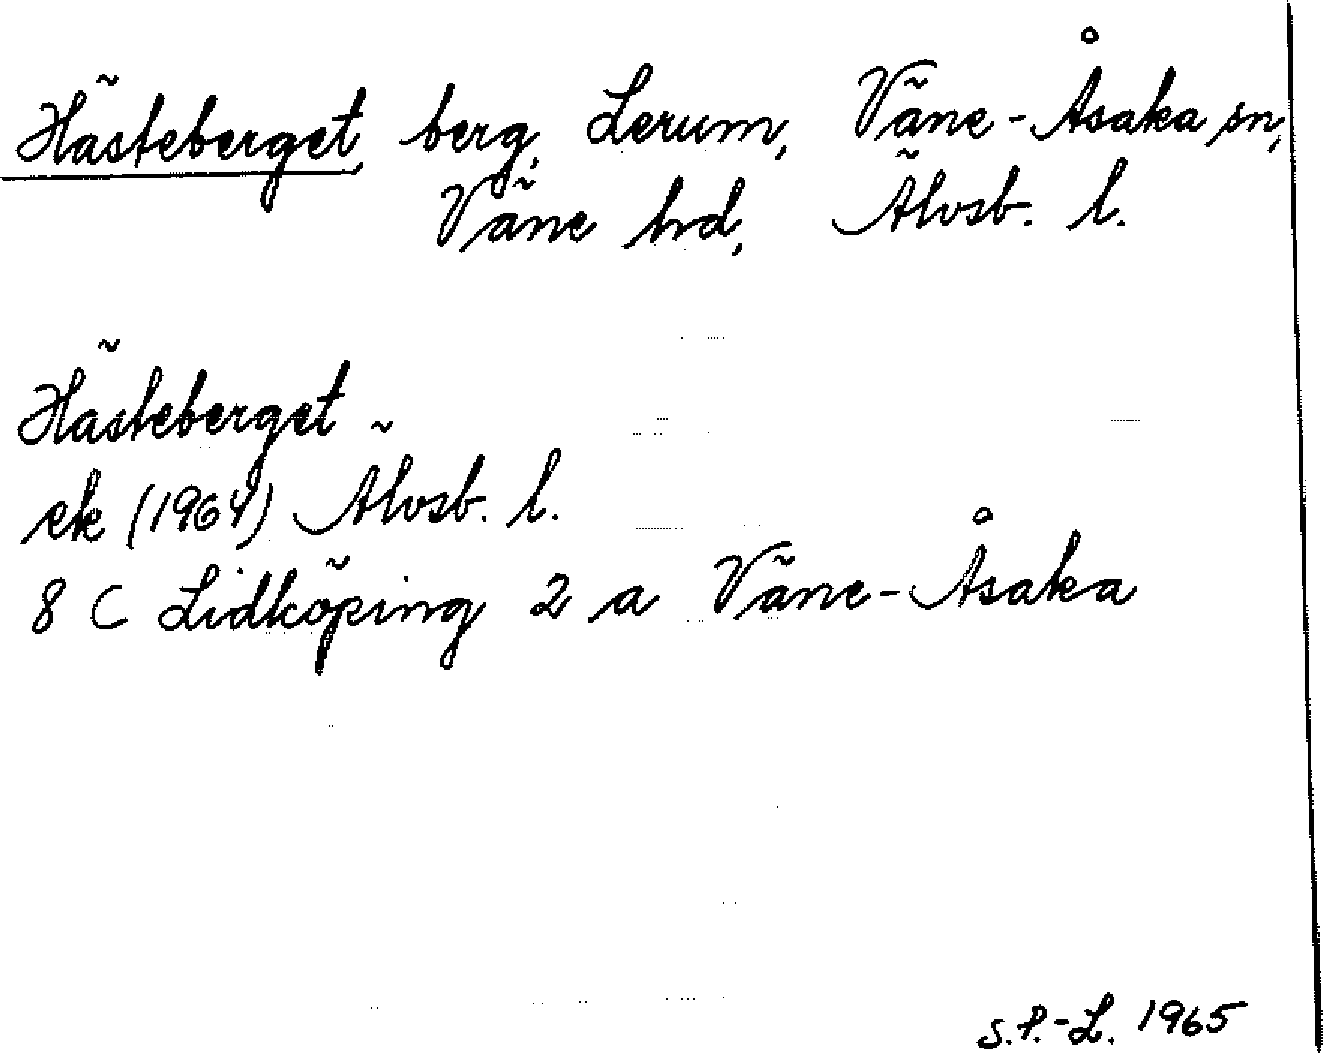 Hästeberget, berg, Lerum, Väne-Åsaka sn,
Väne hd, Älvsb. l.
Hästeberget
ek (1964) Älvsb. l.
8 C Lidköping 2 a Väne-Åsaka
S.P.-L. 1965